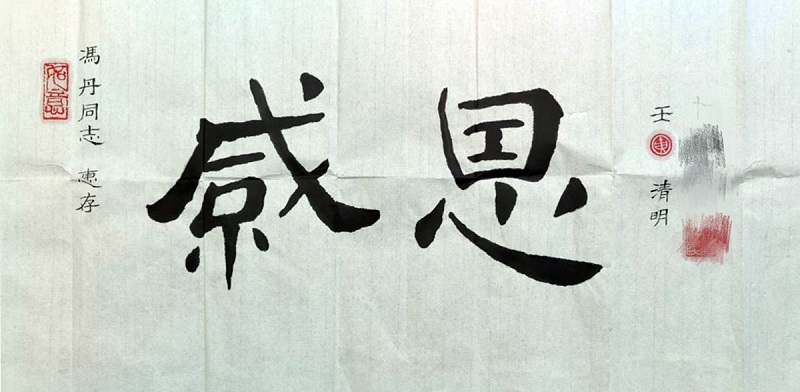 如意
馮丹同志 惠存
感恩
壬 清明